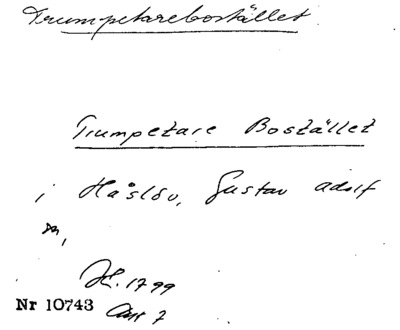 Trumpetarebostället
Trumpetare Bostället
i Håslöv, Gustav Adolf
Nr 10743